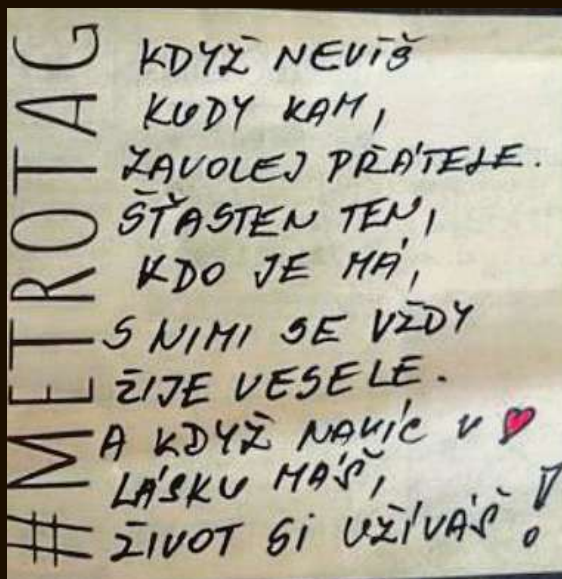 #METROTAG
KDYŽ NEVÍŠ
KUDY KAM,
ZAVOLEJ PŘÁTELE.
ŠŤASTEN TEN,
KDO JE MÁ,
S NIMI SE VŽDY
ŽIJE VESELE.
A KDYŽ NAVÍC V ♥
LÁSKU MÁŠ,
ŽIVOT SI UŽÍVÁŠ!